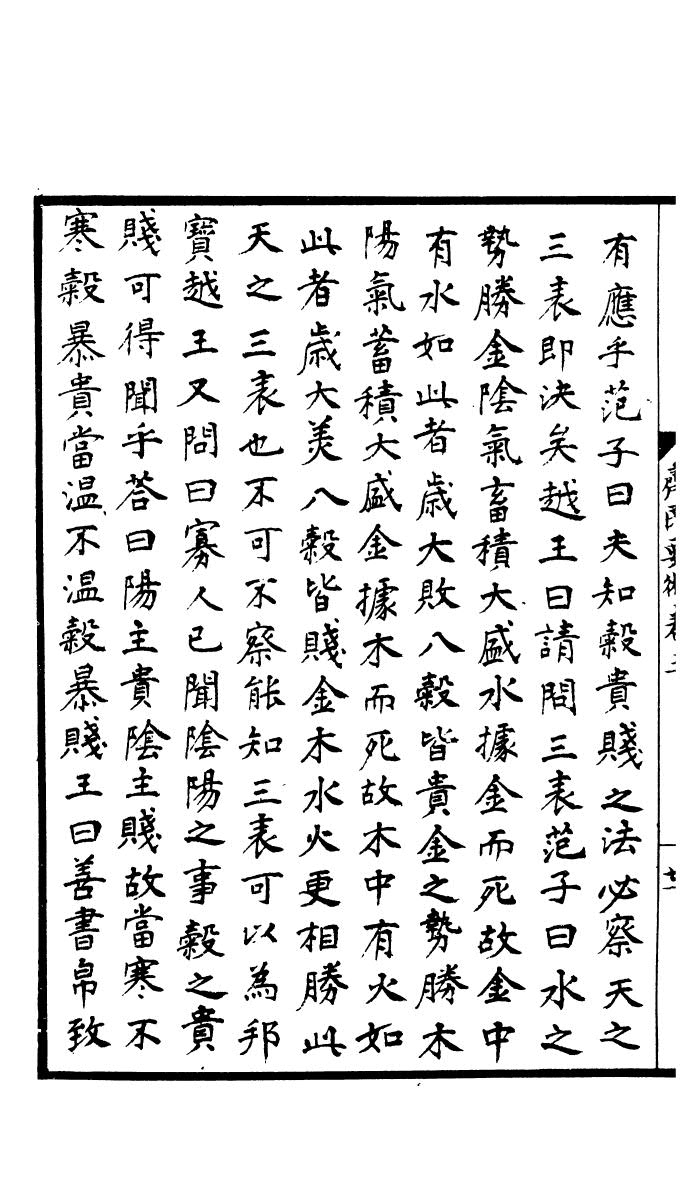 有應乎范子曰夫知糓貴賤之法必察天之
三表即決矣越王曰請問三表范子曰水之
勢勝金隂氣畜積大盛水據金而死故金中
有水如此者歳大敗八糓皆貴金之勢勝木
陽氣蓄積大盛金據木而死故木中有火如
此者歳大美八糓皆賤金木水火更相勝此
天之三表也不可不察能知三表可以為邦
寶越王又問曰寡人已聞隂陽之事糓之貴
賤可得聞乎答曰陽主貴隂主賤故當寒不
寒糓暴貴當温不温糓暴賤王曰善書帛致